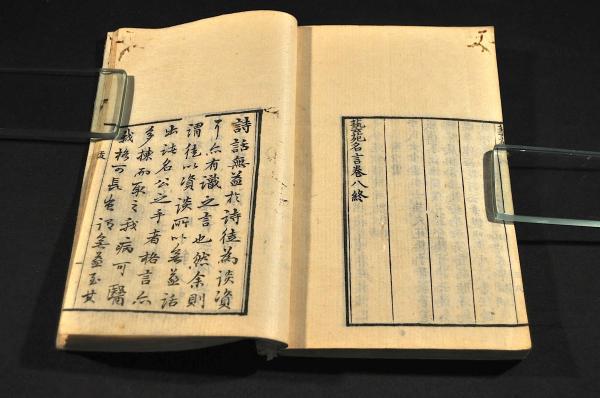 藝苑名言卷八終
詩話無益於詩徒為談資
耳亦有識之言也然余則
謂徒以資談所以無益話
出於名公之手者格言亦
多揀而取之我病可醫
我格可長豈謂無益至其
跋